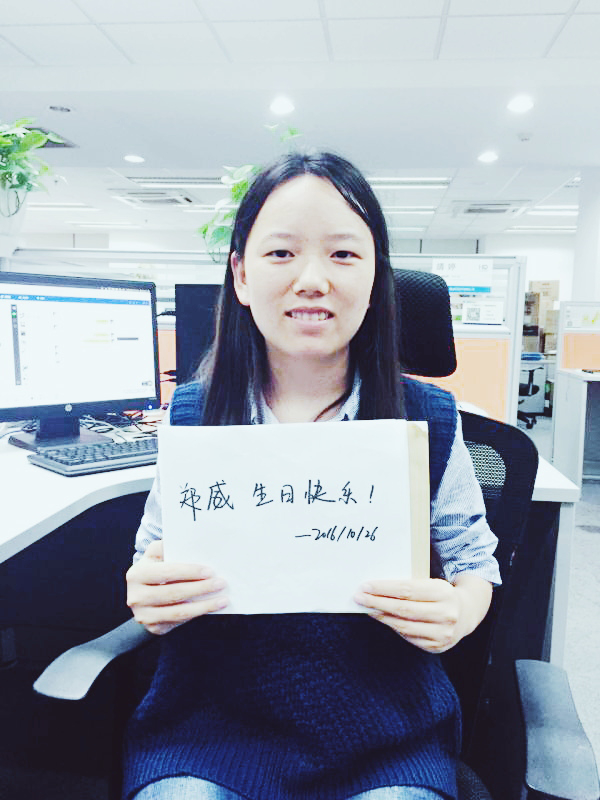 郑威 生日快乐！
—2016/10/26